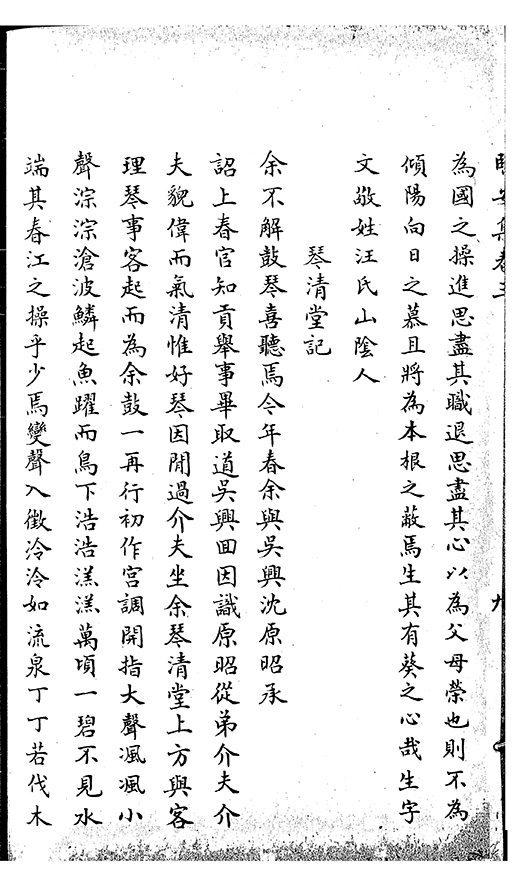 為國之操進思盡其職退思盡其心以為父母榮也則不為
傾陽向日之慕且將為本根之蔽焉生其有葵之心哉生字
文敬姓汪氏山陰人
琴清堂記
余不解鼓琴喜聽焉今年春余與吳興沈原昭承
詔上春官知貢舉事畢取道吳興囬因識原昭從弟介夫介
夫貌偉而氣清惟好琴因閒過介夫坐余琴清堂上方與客
理琴事客起而為余鼓一再行初作宮調開指大聲渢渢小
聲淙淙滄波鱗起魚躍而鳥下浩浩溔溔萬頃一碧不見水
端其春江之操乎少焉變聲入徵泠泠如流泉丁丁若伐木